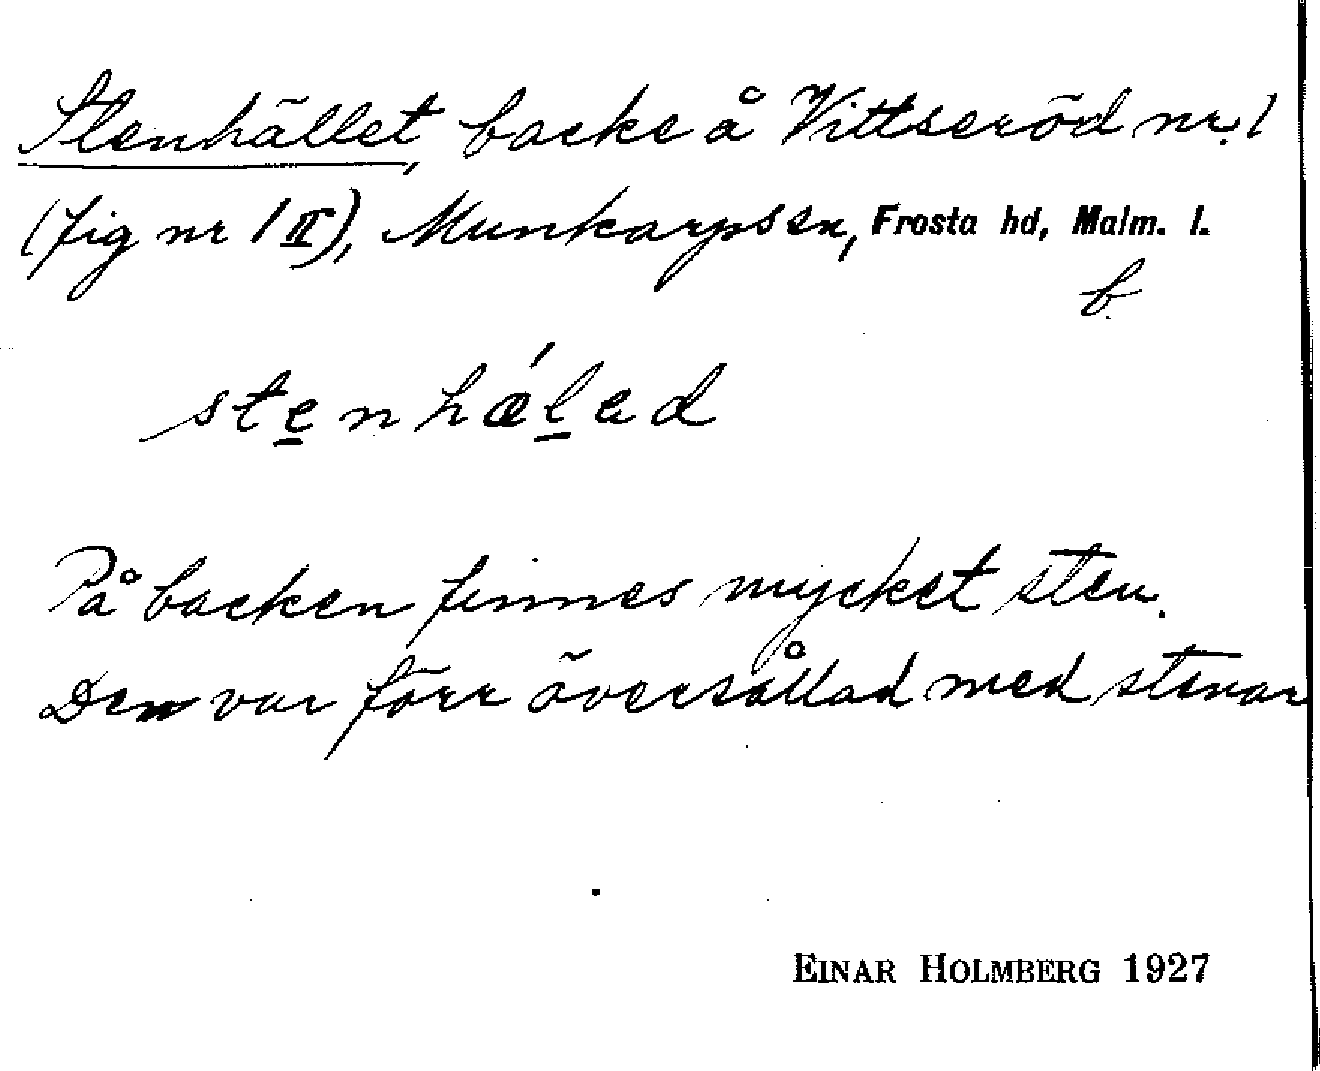 Stenhället, backe å Vittseröd nr. 1
(fig nr 1 II), Munkarps sn, Frosta hd, Malm. l.
b.
ste̱nhǽḻad
På backen finnes mycket sten.
Den var förr översållad med stenar
EINAR HOLMBERG 1927